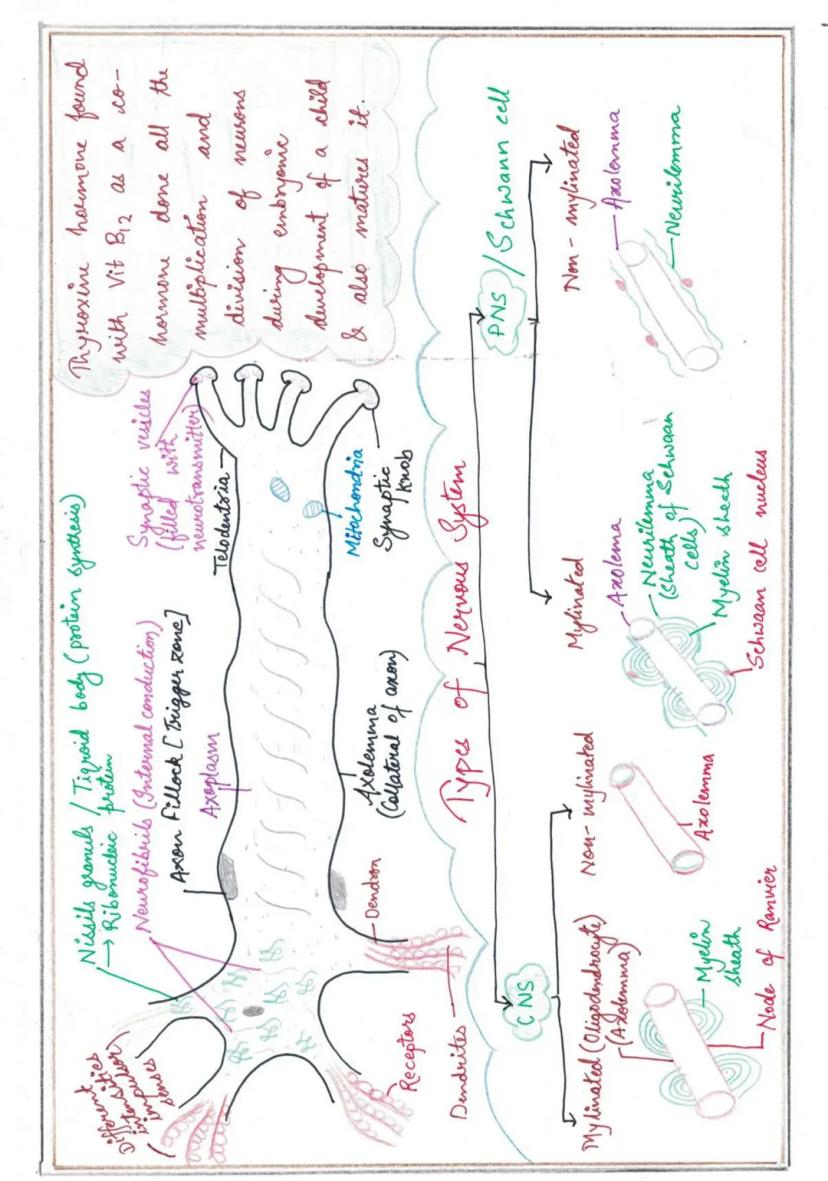 Nissils granuls / Tigroid body (protein synthesis)
→ Ribonucleic
protein
Neurofibrils (Internal conduction)
Axon Fillock [Trigger zone]
Axoplasm
Different
intensities
impulse
senses
Synaptic vesicles
(filled with
neurotransmitter)
Telodentria
Thyroxine hormone found
with Vit B12 as a co-
hormone done all the
multiplication and
division of neurons
during embryonic
development of a child
& also matures it.
Receptors
Dendrites
Dendron
Axolemma
(Collateral of axon)
Mitochondria
Synaptic
Knob
Types of Nervous System
CNS
PNS / Schwann cell
Mylinated (Oligodendrocyte)
(Axolemma)
Myelin
sheath
Node of Ranvier
Non-mylinated
Axolemma
Mylinated
Axolema
Neurilemma
(sheath of Schwaan
cells)
Myelin sheath
Schwaan cell nucleus
Non-mylinated
Axolemma
Neurilemma